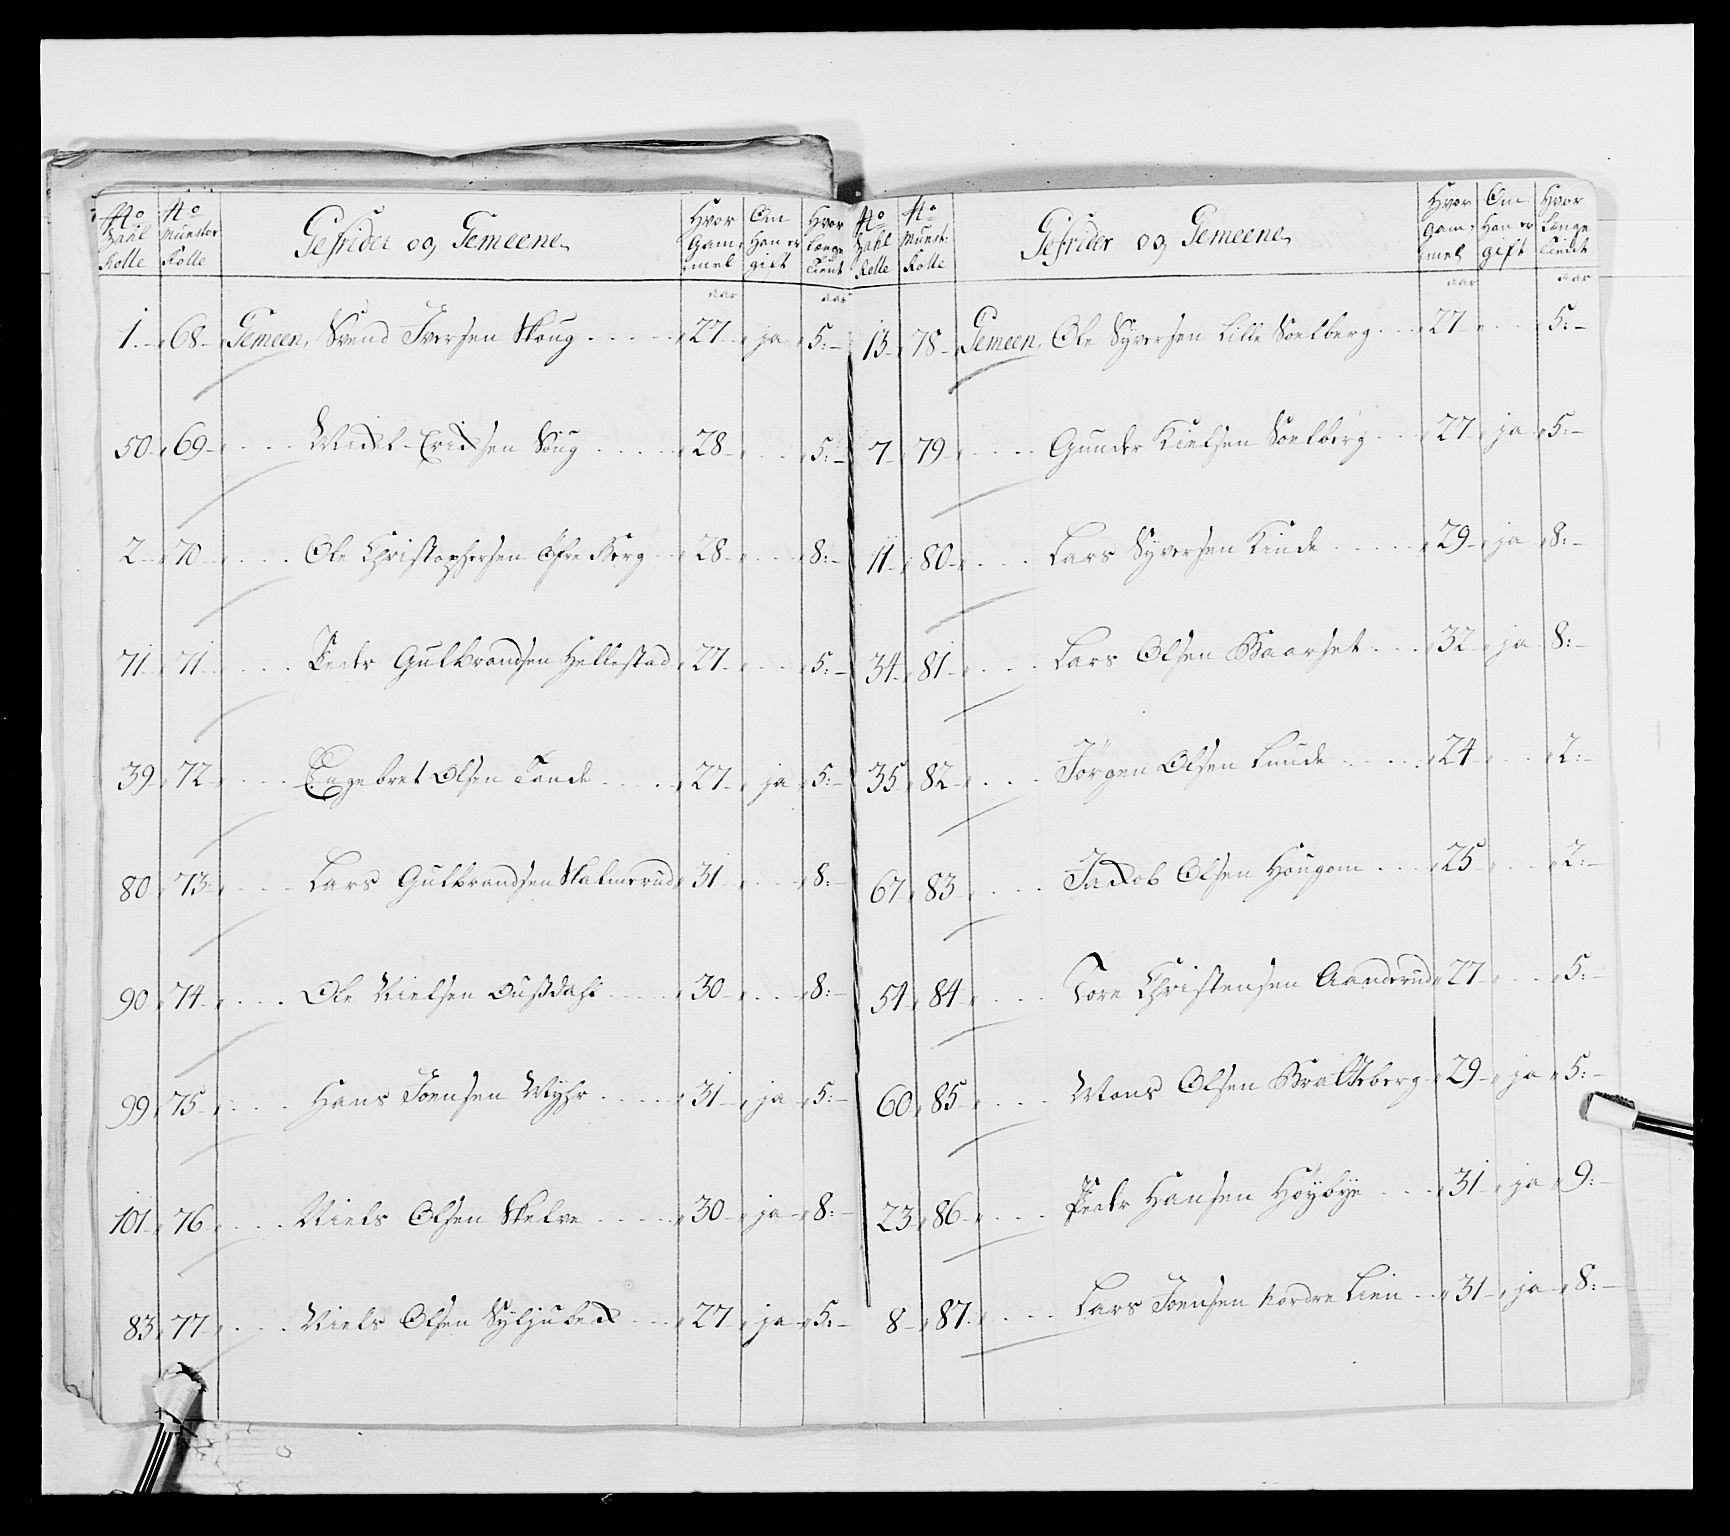 No Zahl Rolle | No Munster Rolle | Gefrider og Gemeene | Hvor Gammel | Om Han er gift | Hvor Længe Tient
aar aar
1 68 Gemeen Svend Iversen Skoug 27 ja 5
50 69 Michel Erichsen Soug 28 5
2 70 Ole Christophersen Øfre Berg 28 8
71 71 Peder Gulbrandsen Hellestad 27 5
39 72 Engebret Olsen Tande 27 ja 5
80 73 Lars Gulbrandsen Skalmerud 31 8
90 74 Ole Nielsen 30 8
99 75 Hans Joensen Myhr 31 ja 5
101 76 Niels Olsen Skelve 30 ja 8
83 77 Niels Olsen Syljubech 27 ja 5
No Zahl Rolle | No Munst: Rolle | Gefrider og Gemeene | Hvor Gammel | Om Han er gift | Hvor Længe Tient
aar aar
13 78 Gemeen Ole Syversen Lille Soelberg 27 5
7 79 Gunder Nielsen Soelberg 27 ja 5
11 80 Lars Syversen Kinde 29 ja 8
34 81 Lars Olsen Baarset 32 ja 8
35 82 Jörgen Olsen Lunde 24 2
67 83 Jachob Olsen Hougom 25 2
54 84 Tore Christensen Aanderud 27 5
60 85 Mons Olsen Bratteberg 29 ja 5
23 86 Peder Hansen Höybye 31 ja 9
8 87 Lars Joensen Nordre Lien 31 ja 8